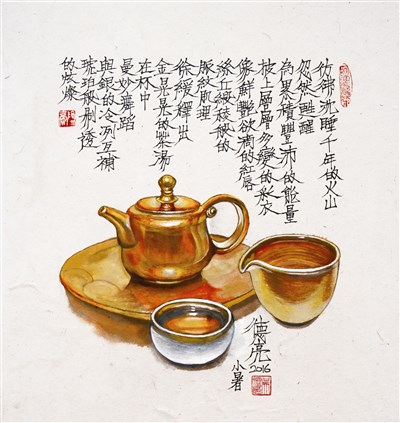 彷彿沈睡千年的火山
忽然甦醒
為累積豐沛的能量
披上層層多變的彩衣
像鮮艷欲滴的紅唇
丘稜般的
脈紋肌理
徐緩釋出
金晃晃的茶湯
在杯中
曼妙舞蹈
與銀的冷冽互補
琥珀般剔透
的燦
德亮
2016
小暑